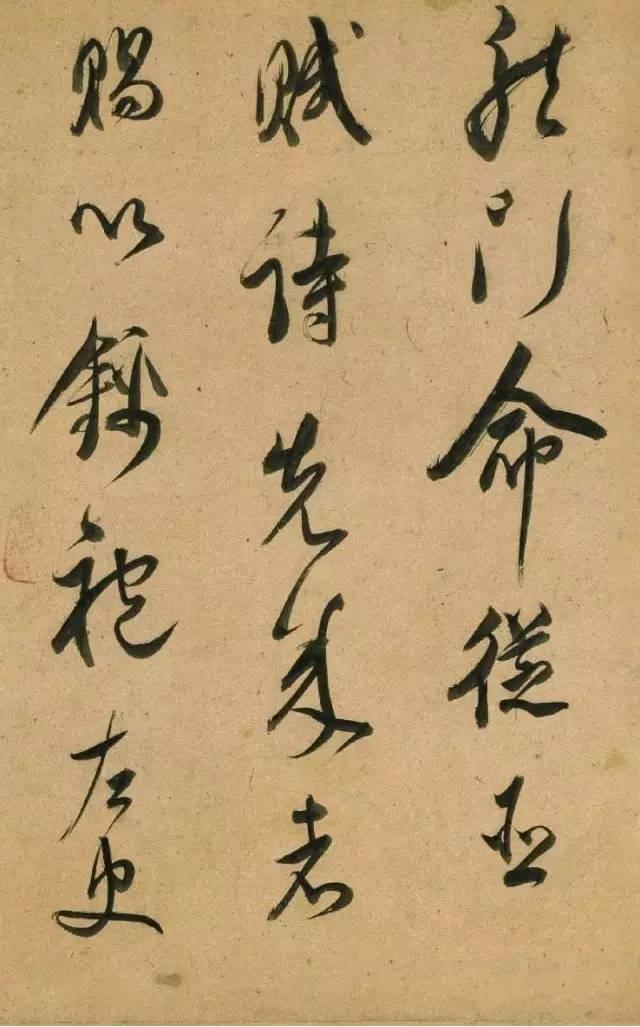 龍門命從臣
賦詩先成者
賜以錦袍左史